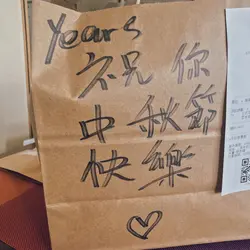 Years
祝你
中秋節
快樂
♡